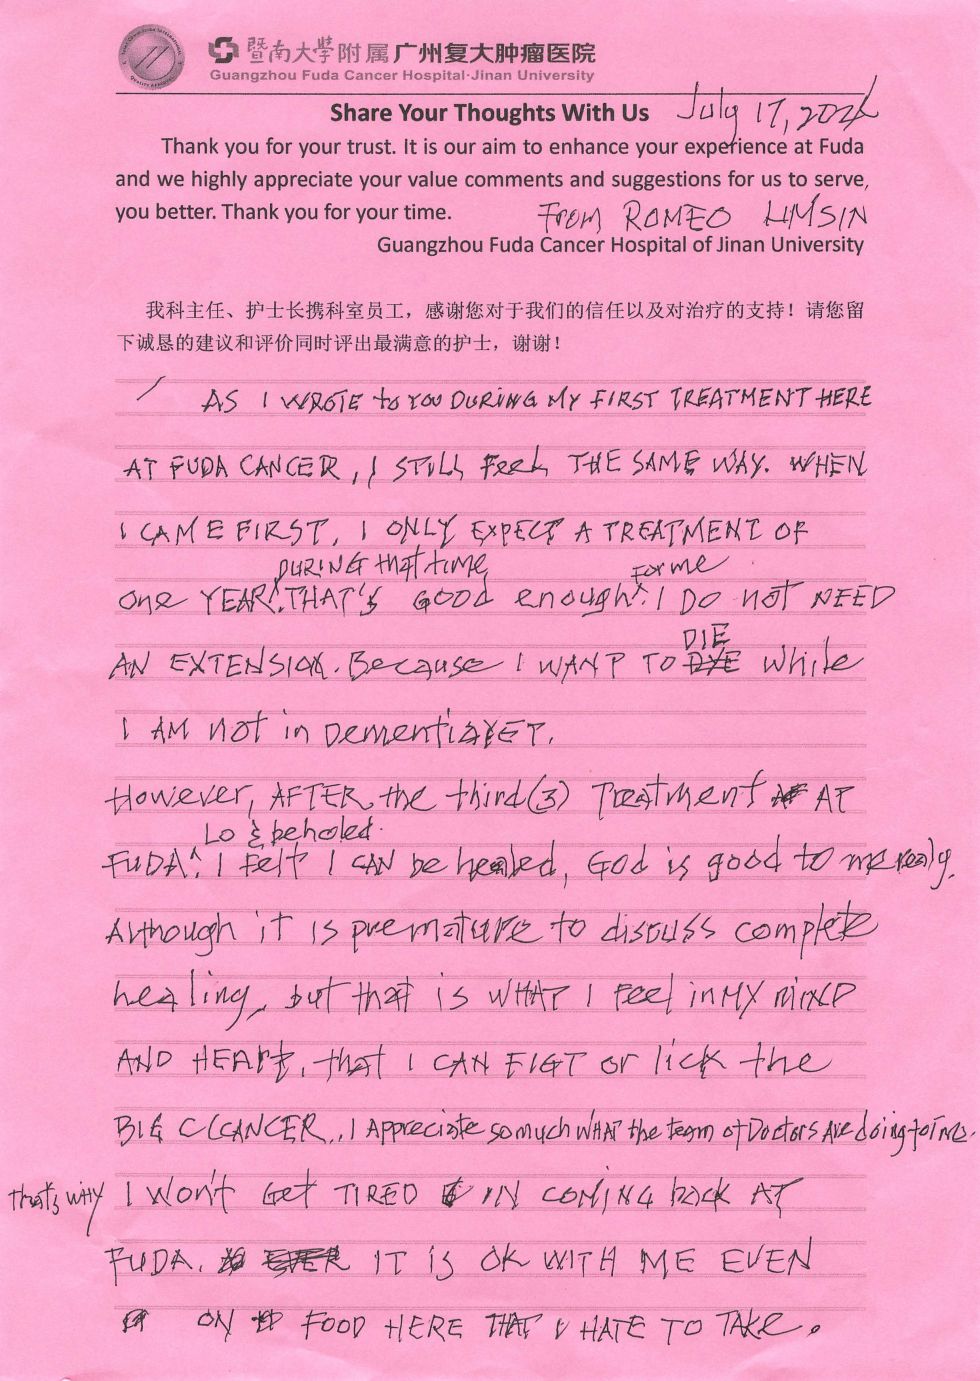 暨南大学附属广州复大肿瘤医院
Guangzhou Fuda Cancer Hospital·Jinan University
Share Your Thoughts With Us July 17, 2024
Thank you for your trust. It is our aim to enhance your experience at Fuda
and we highly appreciate your value comments and suggestions for us to serve,
you better. Thank you for your time. From ROMEO LIMSIN
Guangzhou Fuda Cancer Hospital of Jinan University
我科主任、护士长携科室员工，感谢您对于我们的信任以及对治疗的支持！请您留
下诚恳的建议和评价同时评出最满意的护士，谢谢！
AS I WROTE to YOU DURING MY FIRST TREATMENT HERE
AT FUDA CANCER, I STILL FEEL THE SAME WAY. WHEN
I CAME FIRST, I ONLY EXPECT A TREATMENT OF
DURING that time for me
One YEAR. THAT'S GOOD enough. I DO not NEED
DIE
AN EXTENSION. Because I WANT TO while
I AM not in DementiA YET.
However, AFTER the third (3) Treatment AT
Lo & beholed.
FUDA. I felt I CAN be healed, God is good to me realy.
Although it is premature to discuss complete
healing, but that is WHAT I Feel in MY MIND
AND HEART, that I CAN FIGT or lick the
BIG C (CANCER.. I Appreciate so much WHAT the team of Doctors Are doing to me.
that's why I won't Get TIRED IN COMING back AT
FUDA. IT IS OK WITH ME EVEN
ON FOOD HERE THAT I HATE TO TAKE.